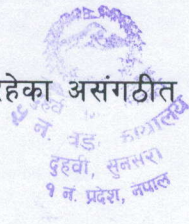 रहेका असंगठीत
न. वडा कार्यालय
दुहवी, सुनसरी
१ नं. प्रदेश, नेपाल